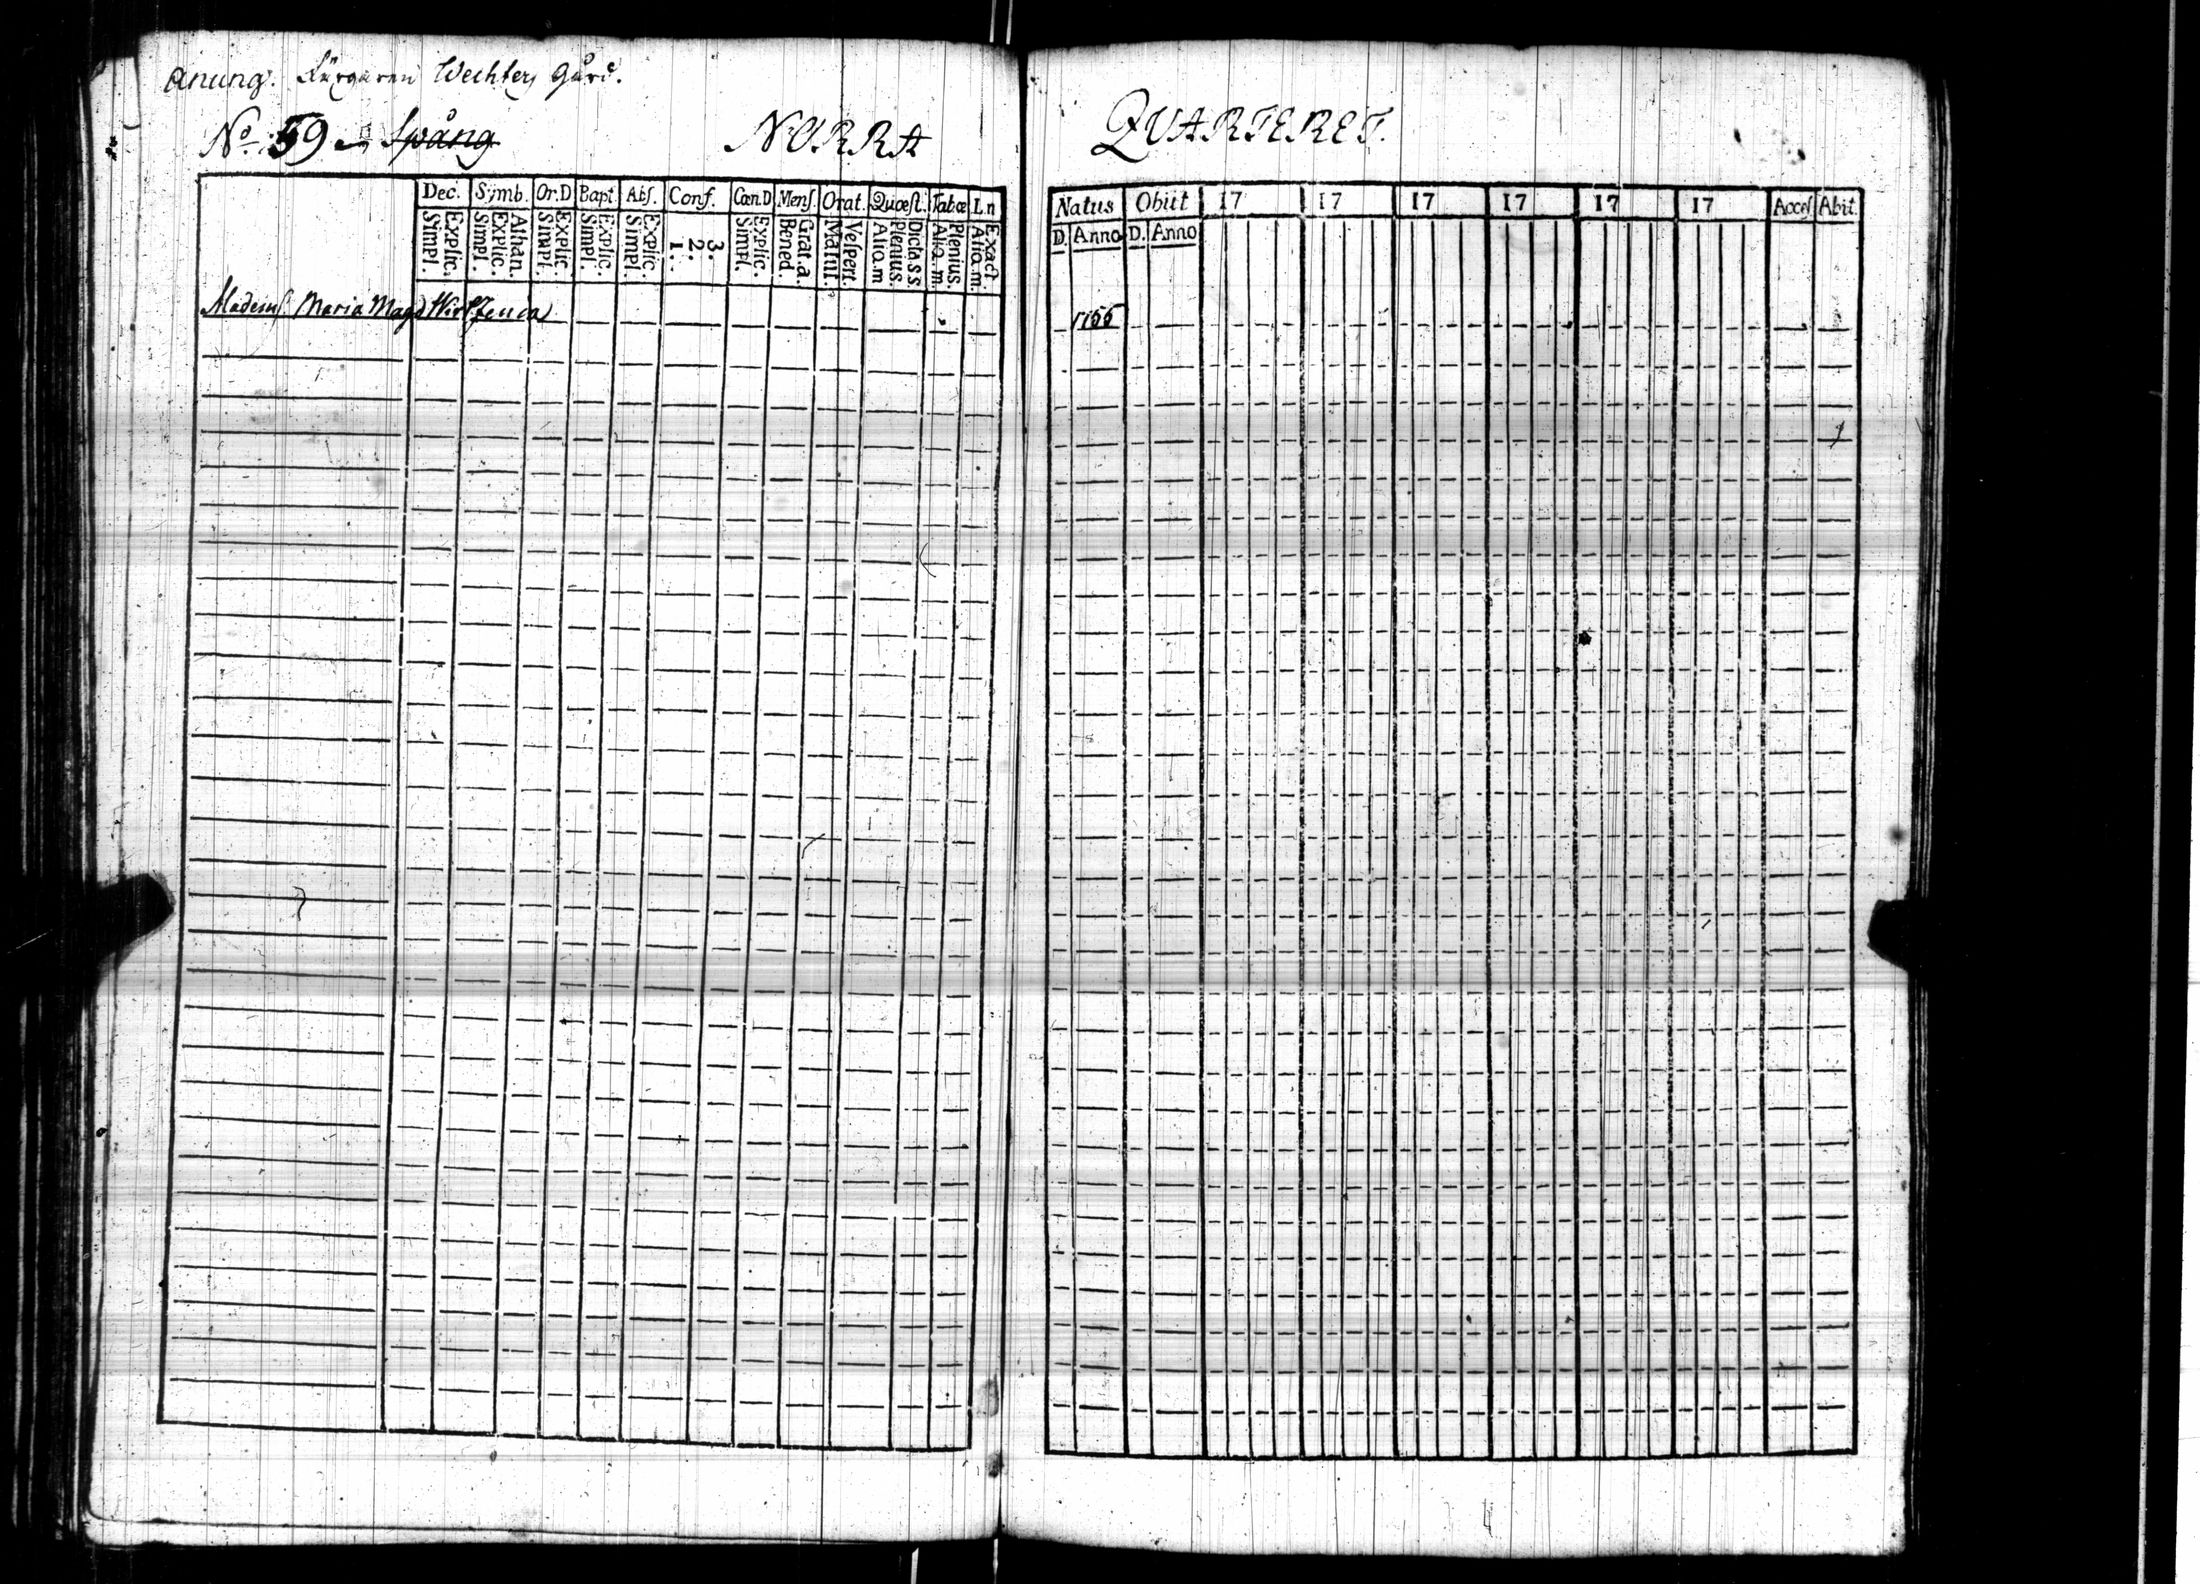 anung. Färgaren Wechters Gård.
No. 59 Spång NORRA QUARTERET.
Dec. Symb. Or.D Bapt. Abs. Conf. Cœn.D Mens. Orat. Quœst. Tabœ Ln
Explic. Simpl. Athan. Explic. Simpl. Explic. Simpl. Explic. Simpl. Explic. Simpl. 3. 2. 1. Explic. Simpl. Grat.a. Bened. Vespert. Matut. Dicta.s.s Plenius. Aliq.m Plenius. Aliq.m. Exact. Aliq.m.
Natus Obiit 17 17 17 17 17 17 Acces Abit.
D. Anno D. Anno
Maria Magd